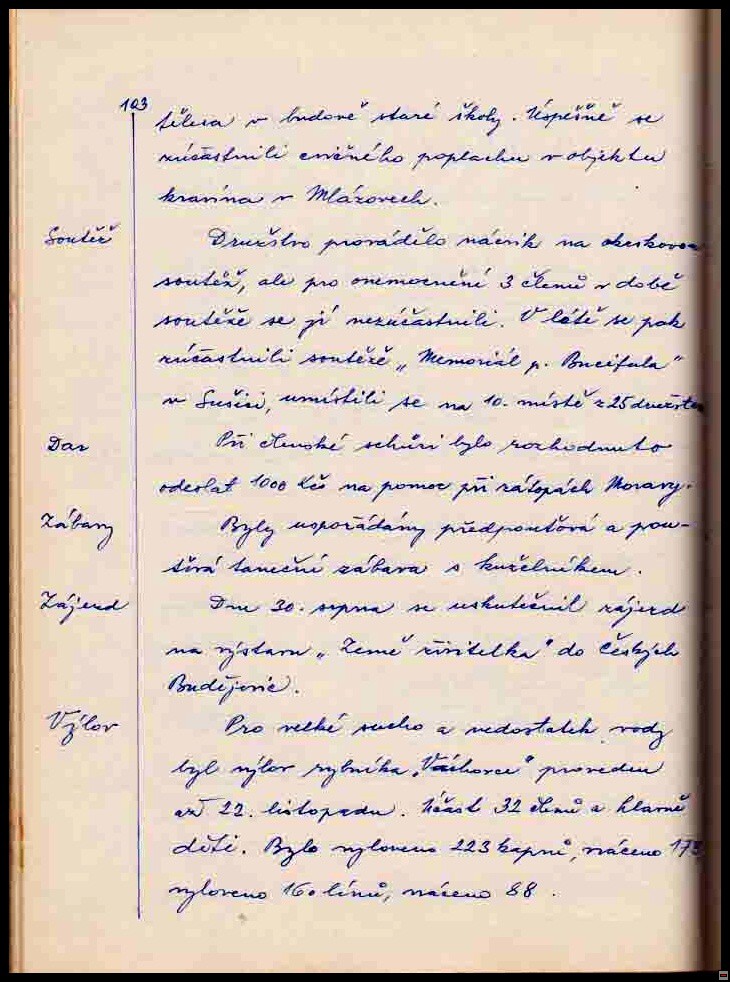 103
tělesa v budově staré školy. Úspěšně se
zúčastnili cvičného poplachu v objektu
kravína v Mlázovech.
Soutěž
Družstvo provádělo nácvik na okrskovou
soutěž, ale pro onemocnění 3 členů v době
soutěže se jí nezúčastnili. V létě se pak
zúčastnili soutěže „Memoriál p. Bucifala"
v Sušici, umístili se na 10. místě z 25 družstev
Dar
Při členské schůzi bylo rozhodnuto
odeslat 1000 Kčs na pomoc při zátopách Moravy.
Zábavy
Byly uspořádány předpouťová a pou-
ťová taneční zábava s kuželníkem.
Zájezd
Dne 30. srpna se uskutečnil zájezd
na výstavu „Země živitelka" do Českých
Budějovic.
Výlov
Pro velké sucho a nedostatek vody
byl výlov rybníka „Váchovce" proveden
až 22. listopadu. Účast 32 členů a hlavně
děti. Bylo vyloveno 223 kaprů, vráceno 173
vyloveno 160 línů, vráceno 88.